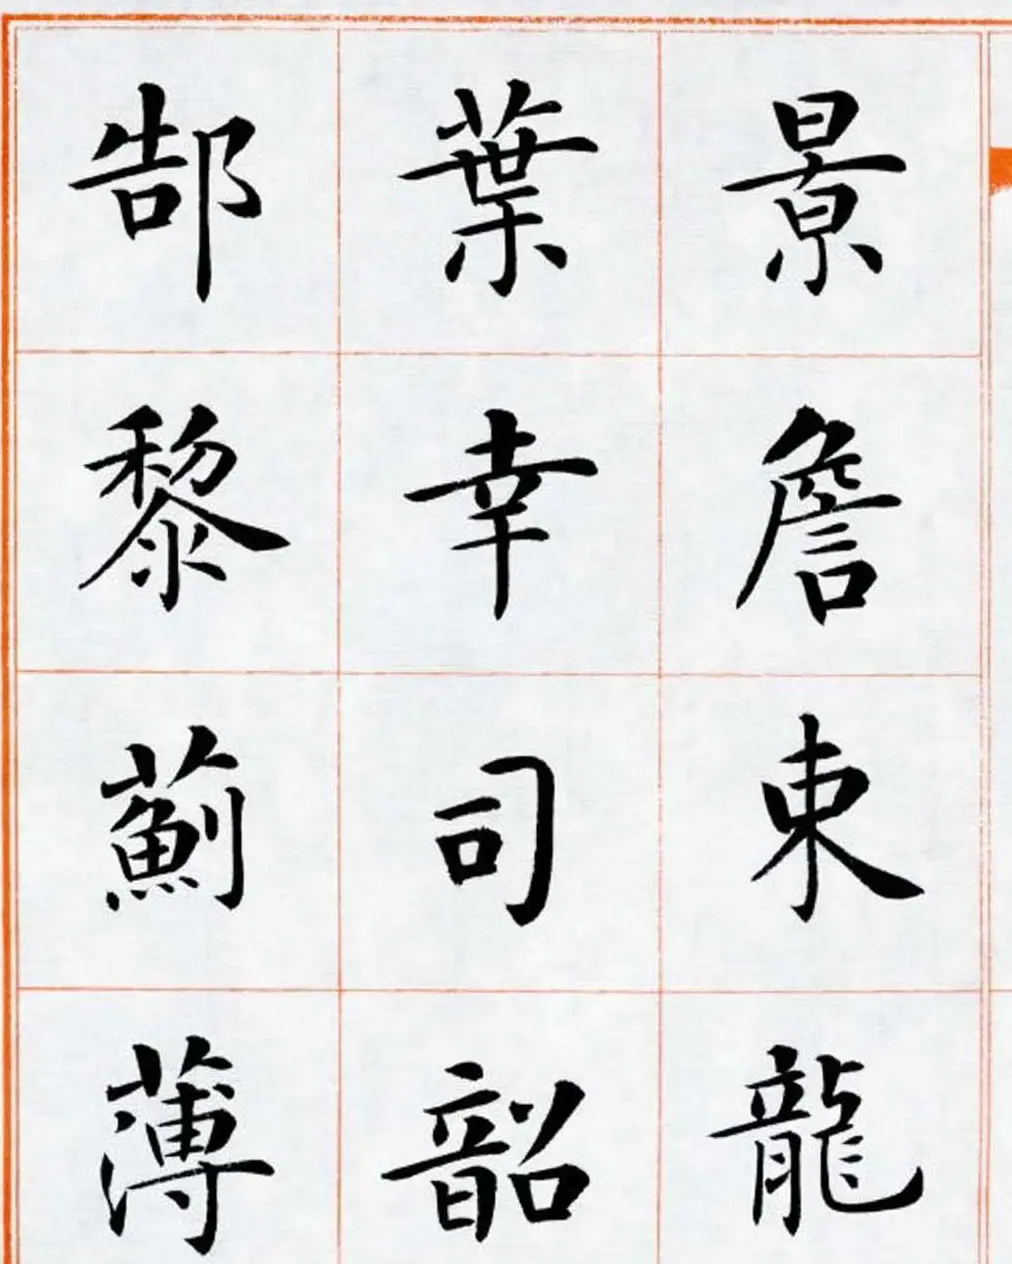 景詹束龍
葉幸司韶
郜黎薊薄